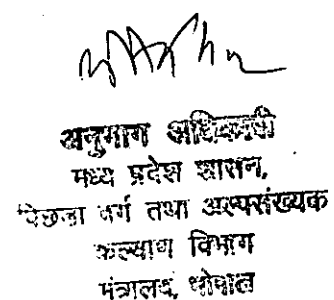 अनुभाग अधिकारी
मध्य प्रदेश शासन,
पिछड़ा वर्ग तथा अल्पसंख्यक
कल्याण विभाग
मंत्रालय, भोपाल